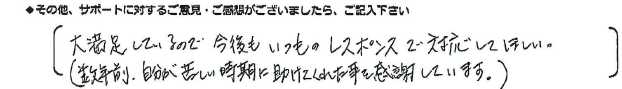 ◆その他、サポートに対するご意見・ご感想がございましたら、ご記入下さい
大満足しているので 今後も いつもの レスポンスで対応してほしい。
(数年前、自分が苦しい時期に助けてくれた事を感謝しています。)